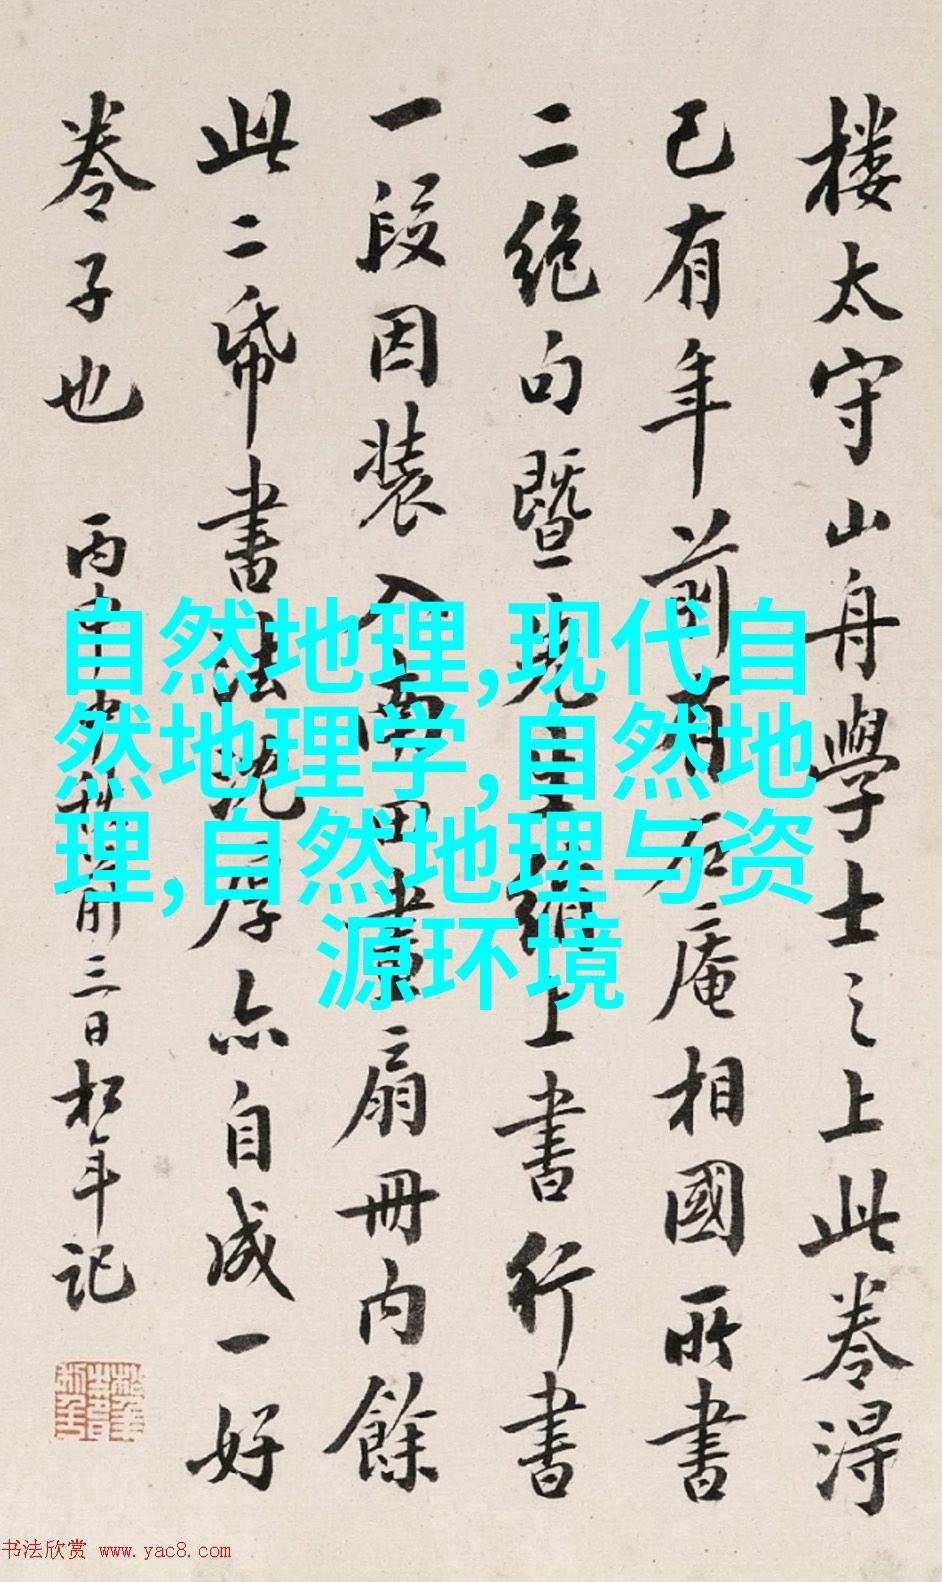 楼太守山舟學士之上此卷淂
已有年前有石庵相國所書
二絶句暨上書行書
一段因装入南田畫扇冊内餘
此二帋書法沈厚亦自成一好
卷子也 丙申中秋前三日松年记
自然地理,现代自
然地理学,自然地
理,自然地理与资
源环境
书法欣赏 www.yac8.com